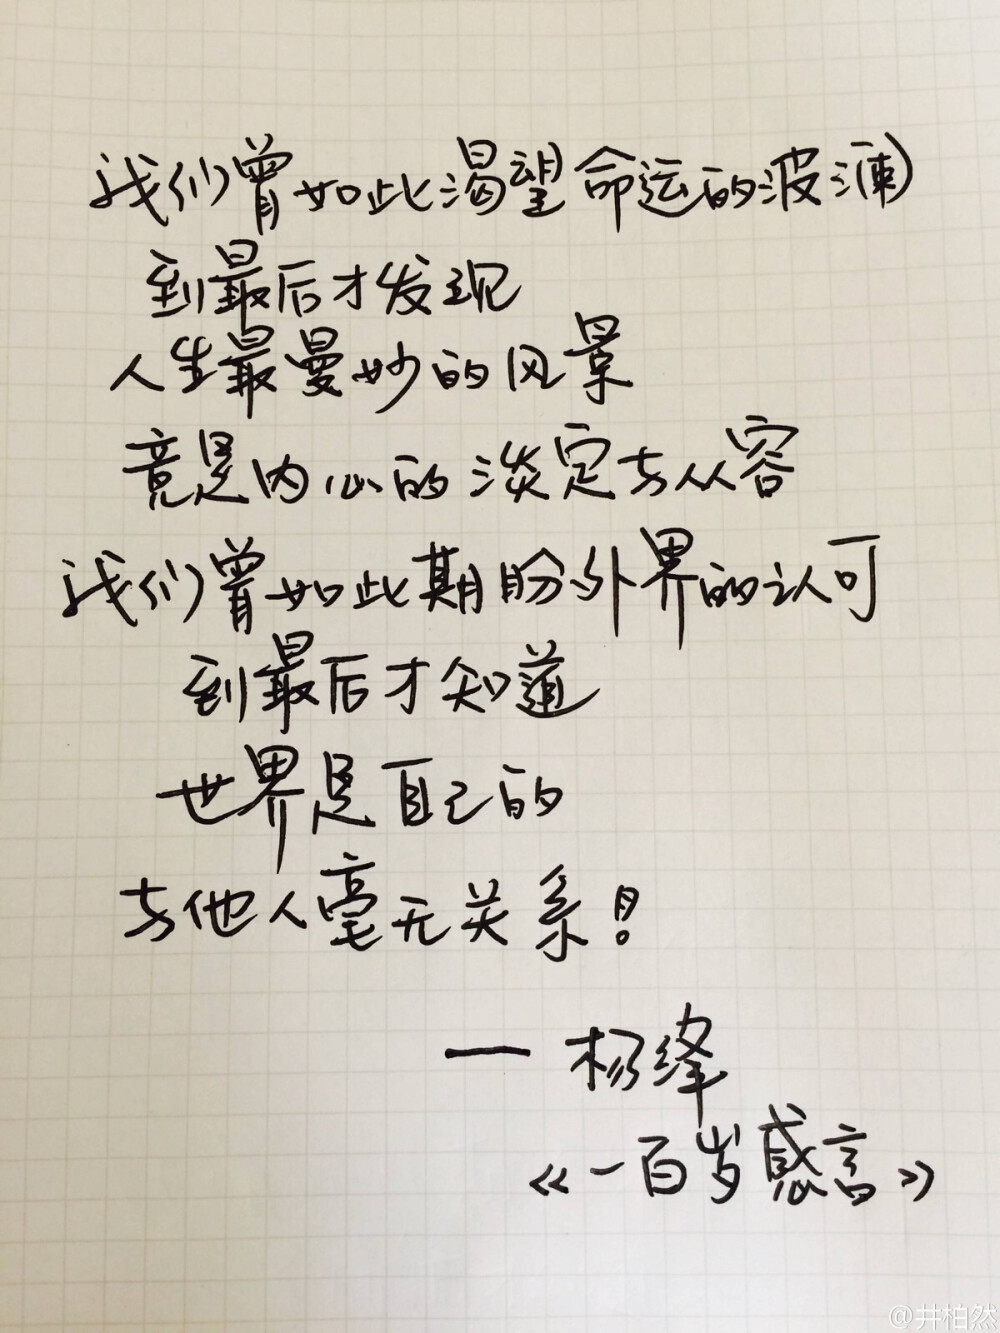 我们曾如此渴望命运的波澜
到最后才发现
人生最曼妙的风景
竟是内心的淡定与从容
我们曾如此期盼外界的认可
到最后才知道
世界是自己的
与他人毫无关系！
— 杨绛
《一百岁感言》
@井柏然